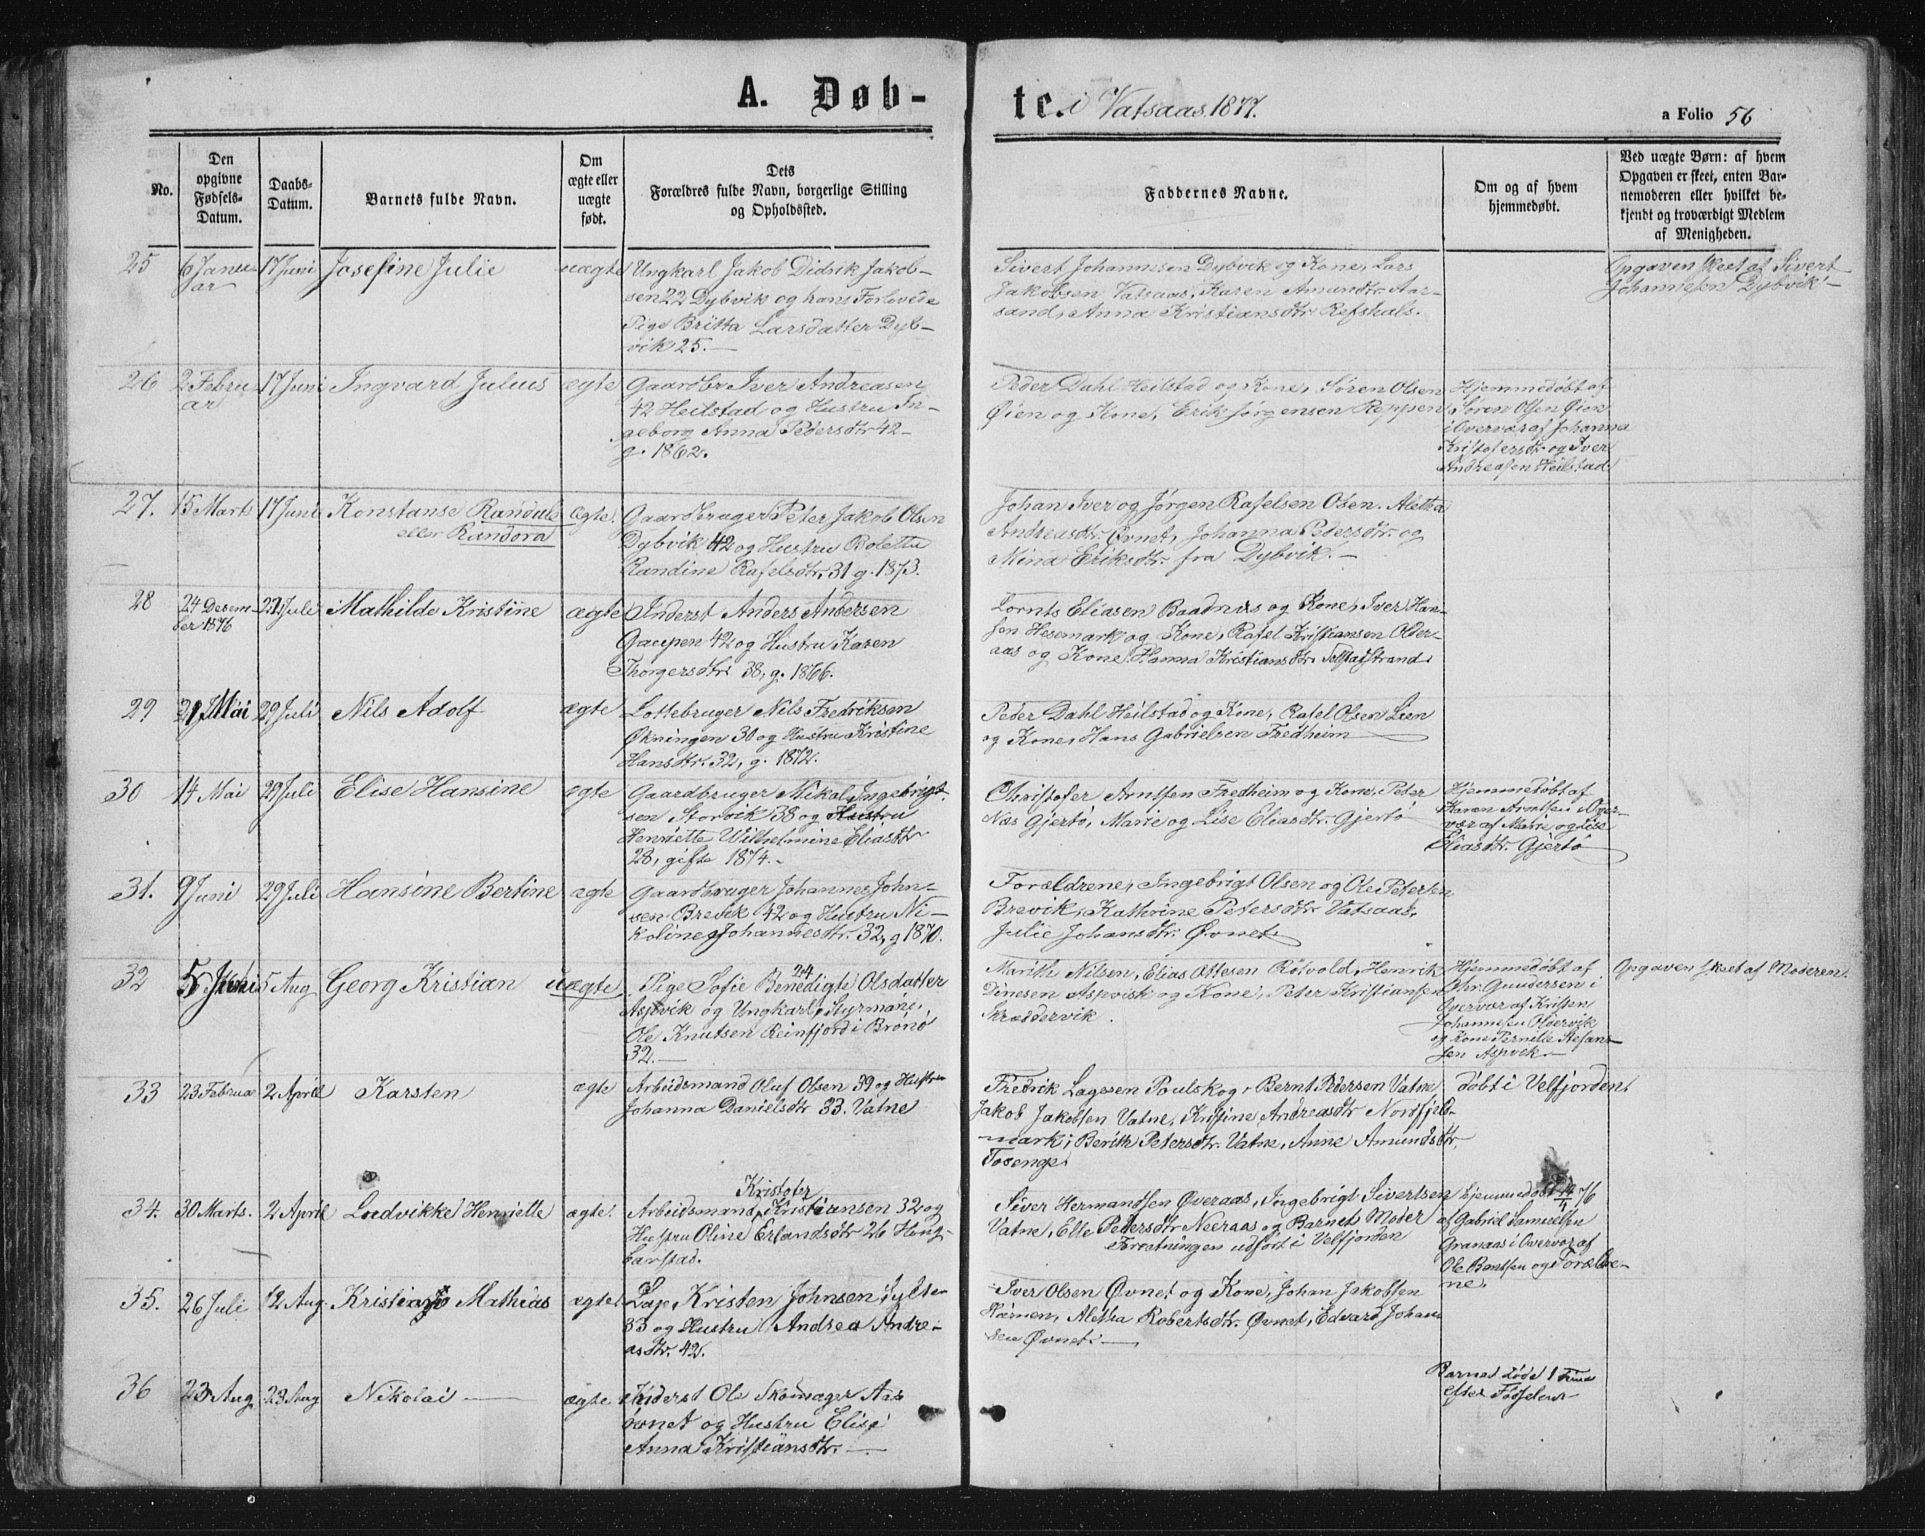 A. Døb-
te. i Vatsaas 1877.
a Folio 56
No.
Den
opgivne
Fødsels-
Datum.
Daabs-
Datum.
Barnets fulde Navn.
Om
ægte eller
uægte
født.
Dets
Forældres fulde Navn, borgerlige Stilling
og Opholdssted.
Faddernes Navne.
Om og af hvem
hjemmedøbt.
Ved uægte Børn: af hvem
Opgaven er skeet, enten Bar-
nemoderen eller hvilket be-
kjendt og troværdigt Medlem
af Menigheden.
25
6 Janu-
ar
17 Juni
Josefine Julie
uægte
Ungkarl Jakob Didrik Jakob-
sen 22 Dybvik og hans Forlovede
Pige Britta Larsdatter Dyb-
vik 25.
Sivert Johannesen Dybvik og Kone, Lars
Jakobsen Vatsaas, Karen Amundsdtr Aar-
sand, Anna Kristiansdtr Refshals.
Opgaven skeet af Sivert
Johannesen Dybvik
26
2 Febru
ar
17 Juni
Ingvard Julius
ægte
Gaardbr Iver Andreasen
42 Heilstad og Hustru In-
geborg Anna Pedersdtr 42
g. 1862.
Peder Dahl Heilstad og Kone, Søren Olsen
Øien og Kone, Erik Jørgensen Reppen
Hjemmedøbt af
Søren Olsen Øien
i Overvær af Johanna
Kristofersdtr og Iver
Andreasen Heilstad
27.
15 Marts
17 Juni
Konstanse Randule
eller Randora
ægte.
Gaardbruger Peter Jakob Olsen
Dybvik 42 og Hustru Bolette
Randine Rafelsdtr. 31 g. 1873.
Johan Iver og Jørgen Rafelsen Olsen. Aletha
Andreasdtr. Øvnet, Johanna Pedersdtr. og
Mina Eriksdtr. fra Dybvik.
28
24 Desem-
ber 1876
22 Juli
Mathilde Kristine
ægte
Inderst Anders Andersen
Gaupen 42 og Hustru Karen
Thorgersdtr. 38, g. 1866.
Lornts Eliasen Baadnes og Kone, Iver Han-
sen Hesemark og Kone, Rafel Kristiansen Older-
aas og Kone. Hanna Kristiansdtr.
29
21 Mai
29 Juli
Nils Adolf
ægte
Lottebruger Nils Fredriksen
Økningen 30 og Hustru Kristine
Hansdtr. 32, g. 1872.
Peder Dahl Heilstad og Kone, Rafel Olsen Lien
og Kone, Hans Gabrielsen Fredheim
30
14 Mai
29 Juli
Elise Hansine
egte
Gaardbruger Nikol. Ingebrigt-
sen Storvik 38 og Hustru
Henriette Wilhelmine Eliasdtr
28, gifte 1874.
Christofer Arntsen Fredheim og Kone, Peter
Næs Gjertø, Marie og Lise Eliasdtr. Gjertø
Hjemmedøbt af
Karen Arntsen i Over-
vær af Marie og Lise
Eliasdtr. Gjertø
31.
9 Juni
29 Juli
Hansine Bertine
ægte
Gaardbruger Johannes John-
sen Brevik 42 og Hustru Ni-
koline Johannesdtr. 32, g 1870.
Forældrene, Ingebrigt Olsen og Ole Petersen
Brevik, Kathrine Petersdtr. Vatsaas,
Julie Johansdtr. Øvnet.
32
5 Juni
5 Aug
Georg Kristian
uægte
Pige Sofie Benedigte 24 Olsdatter
Aspvik og Ungkarl, Styrmand,
Ole Knutsen Reinfjord i Brønø
32.
Marith Nilsen, Elias Ottesen Røtvold, Henrik
Dinesen Aspevik og Kone, Peter Kristiansen
Skræddervik.
Hjemmedøbt af
Chr. Gundersen i
Overvær af Kristen
Johannesen Olvervik
og Kone Pernille Stefan-
sen Aspvik
Opgaven skeet af Moderen.
33
23 Februar
2 April
Karsten
ægte
Arbeidsmand Oluf Olsen 39 og Hustru
Johanna Danielsdtr 33. Vatne
Fredrik Lagesen Poulskog, Bernt Pedersen Vatne
Jakob Jakobsen Vatne, Kristine Andreasdtr Nordfjeld-
mark, Berith Petersdtr. Vatne, Anne Amundsdtr.
Tosenge.
døbt i Velfjorden.
34.
30 Marts.
2 April
Ludvikke Henriette
ægte.
Kristofer
Arbeidsmand Kristiansen 32 og
Hustru Oline Erlandsdtr 26 Houg-
barstad.
Siver Hermandsen Øveraas, Ingebrigt Sivertsen
Vatne, Elle Petersdtr Neeraas og Barnets Moder
Forretningen udført i Velfjorden
Hjemmedøbt 16/4 76
af Gabriel Samuelsen
Granaas i Overvær af
Ole Bentsen og Forældre-
ne.
35.
26 Juli
12 Aug
Kristian Mathias
ægte.
Lap Kristen Johnsen Sylte
33 og Hustru Andrea Andre-
asdtr. 42.
Iver Olsen Øvnet og Kone, Johan Jakobsen
Hårnen, Aletha Robertsdtr. Øvnet, Edvard Johan-
sen Øvnet.
36
23 Aug
23 Aug
Nikolai
ægte
Inderst Ole Skomager Aas
Øvnet og Hustru Elise
Anna Kristiansdtr.
Barnet døde 1 Time
efter Fødselen